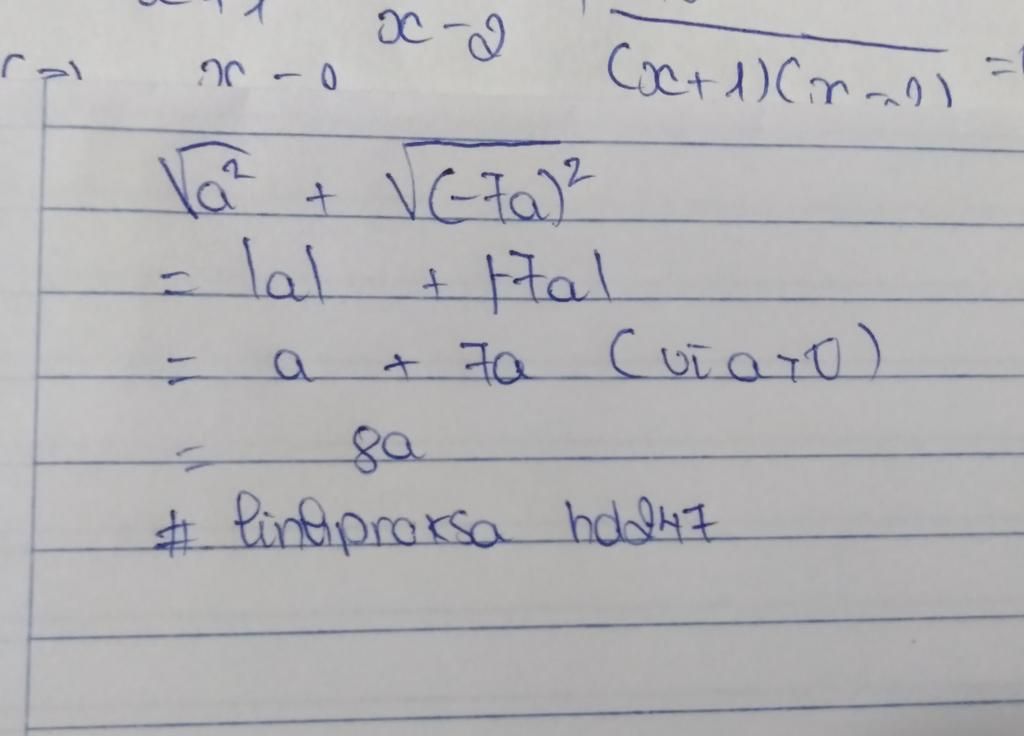 x - 2
x - 0
(x+1)(x-2) =
√a² + √(-7a)²
= |a| + |-7a|
= a + 7a (vì a>0)
= 8a
# linhpraksa hdd247